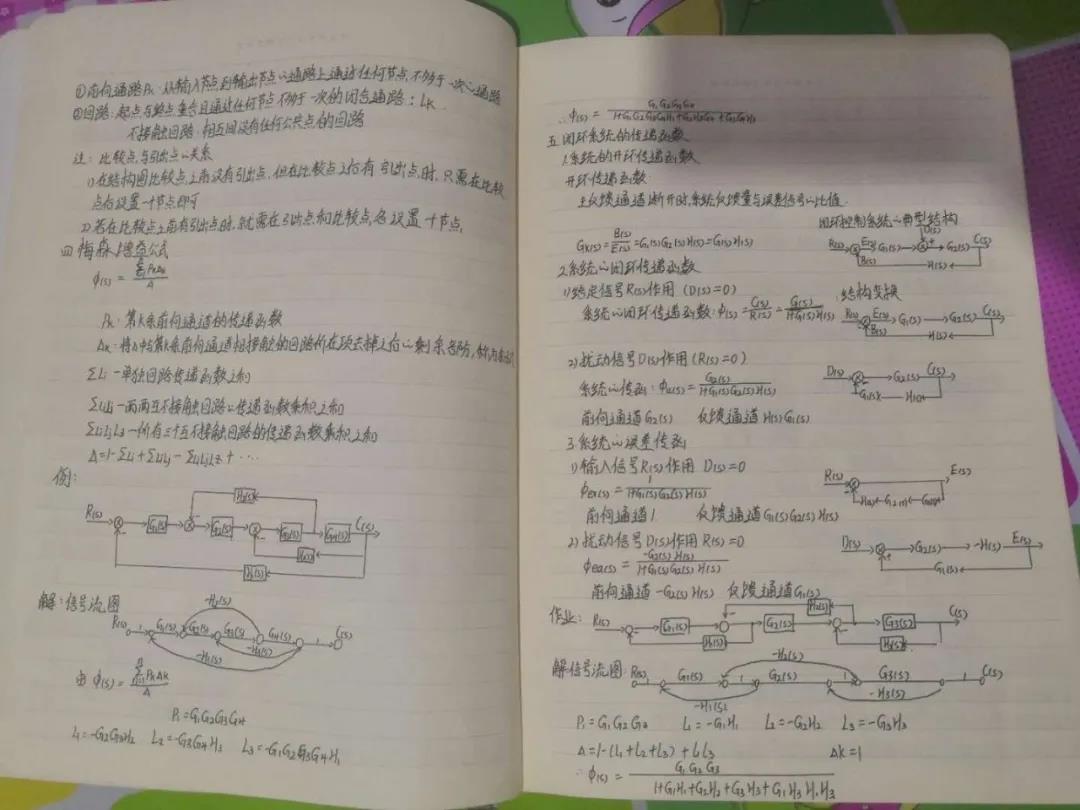 ①前向通路Pk:从输入节点到输出节点的通路上通过任何节点不多于一次的通路
②回路:起点与终点重合且通过任何节点不多于一次的闭合通路:Lk.
不接触回路:相互间没有任何公共点的回路
注:比较点与引出点的关系
1)在结构图比较点之前没有引出点,但在比较点之后有引出点时,只需在比较
点后设置一个节点即可
2)若在比较点之前有引出点时,就需在引出点和比较点各设置一个节点,
四 梅森增益公式
φ(s) = ΣPkΔk/Δ
Pk:第k条前向通道的传递函数
Δk:将Δ中与第k条前向通道相接触的回路所在项去掉之后的剩余部分,
ΣLi—单独回路传递函数之和
ΣLiLj—两两互不接触回路的传递函数乘积之和
ΣLiLjLz—所有三个互不接触回路的传递函数乘积之和
Δ=1-ΣLi+ΣLiLj-ΣLiLjLz+····
例:
H2(s)
R(s) G1(s) G2(s) G3(s) G4(s) C(s)
H3(s)
H1(s)
解:信号流图
-H2(s)
R(s) 1 G1(s) G2(s) G3(s) G4(s) 1 C(s)
-H3(s)
-H1(s)
由 φ(s) = ΣPkΔk/Δ
P1=G1G2G3G4
L1=-G2G3H2 L2=-G3G4H3 L3=-G1G2G3G4H1
∴φ(s) = G1G2G3G4/1+G1G2G3G4H1+G2G3H2+G3G4H3
五 闭环系统的传递函数
1.系统的开环传递函数
开环传递函数
主反馈通道断开时,系统反馈量与误差信号的比值.
闭环控制系统的典型结构
D(s)
R(s) E(s) G1(s) G2(s) C(s)
B(s) H(s)
Gk(s) = B(s)/E(s) = G1(s)G2(s)H(s)=G(s)H(s)
2.系统的闭环传递函数
1)给定信号R(s)作用 (D(s)=0) 结构变换
系统的闭环传递函数:φ(s) = C(s)/R(s) = G(s)/1+G(s)H(s)
R(s) E(s) G1(s) G2(s) C(s)
B(s) H(s)
2)扰动信号D(s)作用 (R(s)=0)
D(s) G2(s) C(s)
G1(s) H(s)
系统的传函:φd(s) = G2(s)/1+G1(s)G2(s)H(s)
前向通道G2(s) 反馈通道H(s)G1(s)
3.系统的误差传函
1)输入信号R(s)作用 D(s)=0
R(s) E(s)
H(s) G2(s) G1(s)
φer(s) = 1/1+G1(s)G2(s)H(s)
前向通道1 反馈通道G1(s)G2(s)H(s)
2)扰动信号D(s)作用 R(s)=0
D(s) G2(s) -H(s) E(s)
G1(s)
φed(s) = -G2(s)H(s)/1+G1(s)G2(s)H(s)
前向通道-G2(s)H(s) 反馈通道G1(s)
作业:
H2(s)
R(s) G1(s) G2(s) G3(s) C(s)
H1(s) H3(s)
解信号流图:
-H2(s)
R(s) 1 G1(s) 1 G2(s) 1 G3(s) 1 C(s)
-H1(s) -H3(s)
P1=G1G2G3 L1=-G1H1 L2=-G2H2 L3=-G3H3
Δ=1-(L1+L2+L3)+L1L3 Δk=1
∴φ(s) = G1G2G3/1+G1H1+G2H2+G3H3+G1H3H1H3